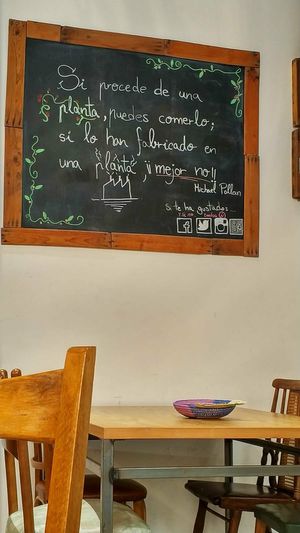 Si procede de una
planta, puedes comerlo;
si lo han fabricado en
una planta, ¡¡mejor no!!
Michael Pollan
Si te ha gustado...